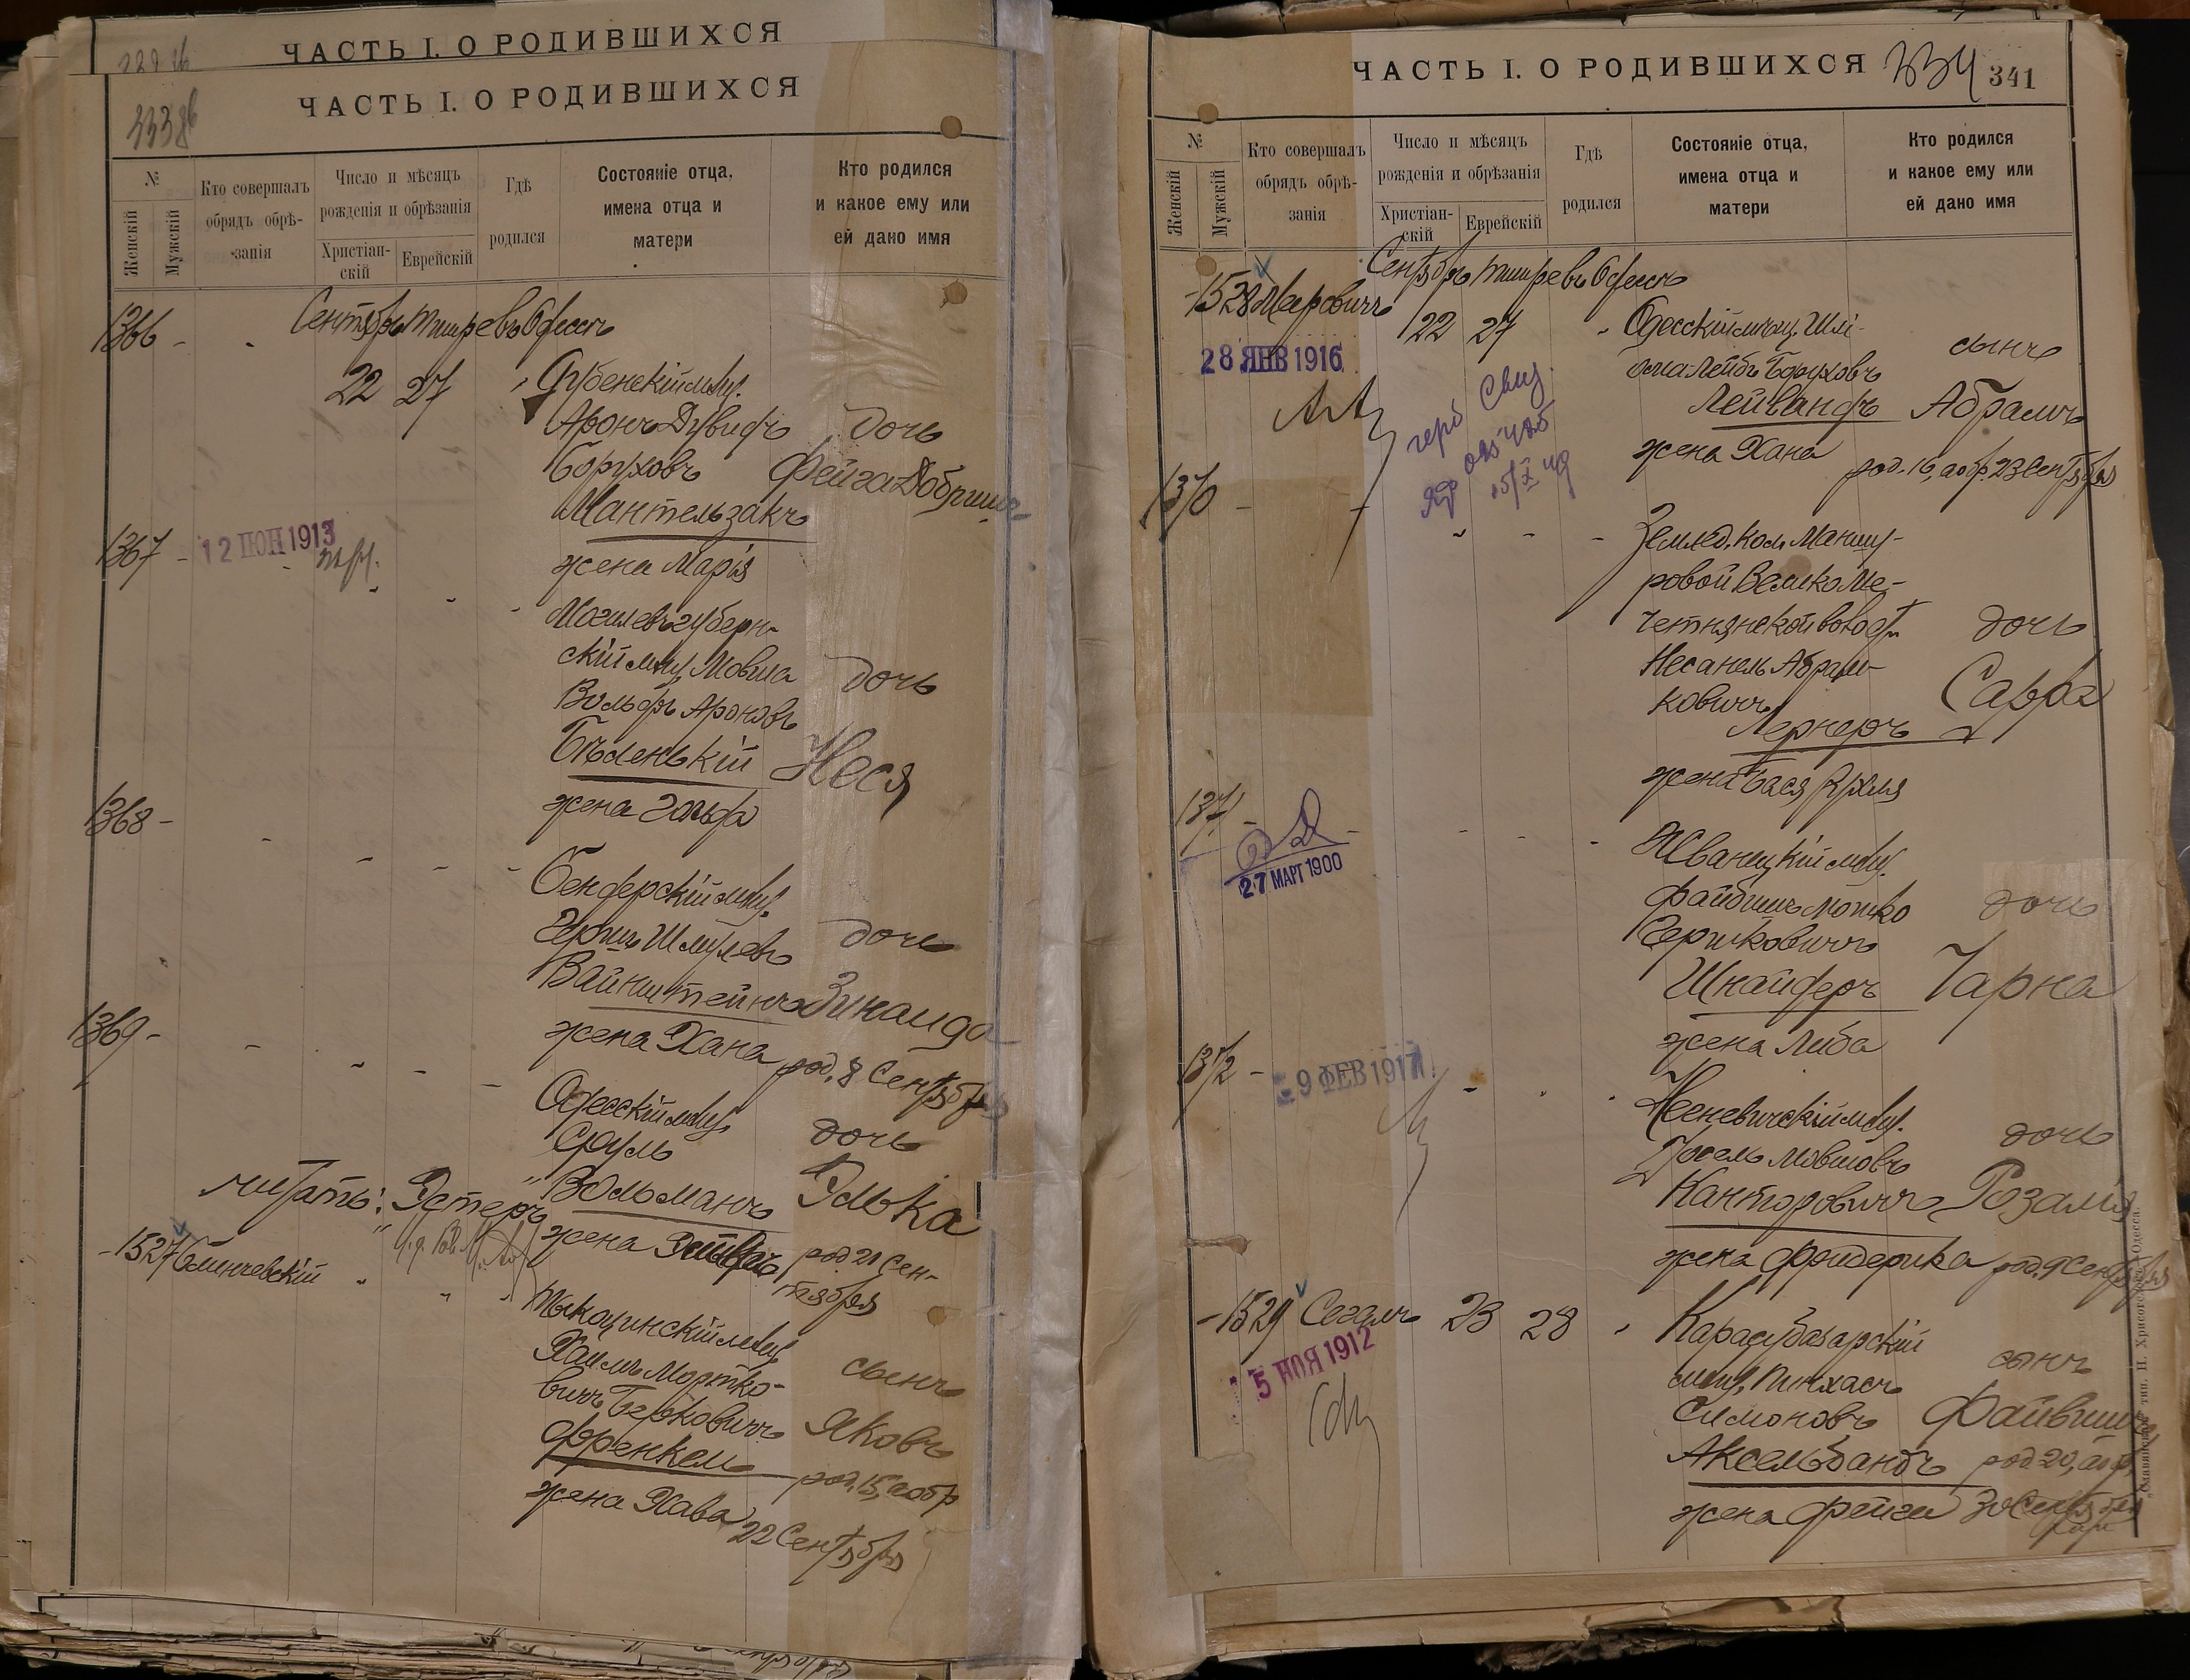 ЧАСТЬ I. О РОДИВШИХСЯ
ЧАСТЬ I. О РОДИВШИХСЯ
№
Женскій
Мужскій
Кто совершалъ
обрядъ обрѣ-
занія
Число и мѣсяцъ
рожденія и обрѣзанія
Христіан-
скій
Еврейскій
Гдѣ
родился
Состояніе отца,
имена отца и
матери
Кто родился
и какое ему или
ей дано имя
1366 -
Сентябрь Тишре въ Одессѣ
22 27
мѣщ.
Аронъ Дувидъ дочь
Боруховъ Фейга Добриша
Мантельзакъ
жена Марія
1367 -
12 ІЮН 1913
Могилевъ губерн-
скій мѣщ. Мовша дочь
Вольфъ Ароновъ
Бѣленькій Неся
жена Гольда
1368 -
Бендерскій мѣщ.
Гершъ Шмулевъ дочь
Вайнштейнъ Зинаида
жена Хана род. 8 Сентября
1369 -
Одесскій мѣщ.
Сруль дочь
Вольманъ Элька
читать: Эстеръ
жена род 21 Сен-
тября
- 1527
мѣщ
Хаимъ Мортко-
вичъ Берковичъ сынъ
Френкель Яковъ
жена Хава род. 15, а обр
22 Сентября
ЧАСТЬ I. О РОДИВШИХСЯ
334 341
№
Женскій
Мужскій
Кто совершалъ
обрядъ обрѣ-
занія
Число и мѣсяцъ
рожденія и обрѣзанія
Христіан-
скій
Еврейскій
Гдѣ
родился
Состояніе отца,
имена отца и
матери
Кто родился
и какое ему или
ей дано имя
Сентябрь Тишре въ Одессѣ
- 1528 Мееровичъ 22 27
28 ЯНВ 1916
Одесскій мѣщ. Шлі-
ома Лейбъ Боруховъ сынъ
Лейвандъ Абрамъ
жена Хана род. 16, а обр. 23 Сентября
1370 -
Землед. кол.
ровой Велико Ме-
четнянской волости дочь
Несанель Абрам-
ковичъ Сарра
Лернеръ
жена Бася Рухля
1371 -
27 МАРТ 1900
Жванецкій мѣщ.
Файбишъ Мошко дочь
Гершковичъ
Шнайдеръ Чарна
жена Либа
1372 -
9 ФЕВ 1917
мѣщ.
Іосель Мовшовъ дочь
Канторовичъ Розалія
жена Фридерика род. 9 Сентября
- 1529 Сегалъ 23 28
5 НОЯ 1912
Карасубазарскій
мѣщ. Пинхасъ сынъ
Симоновъ Файвишъ
Аксельбандъ род 20, а обр
жена Фейга 30 Сентября